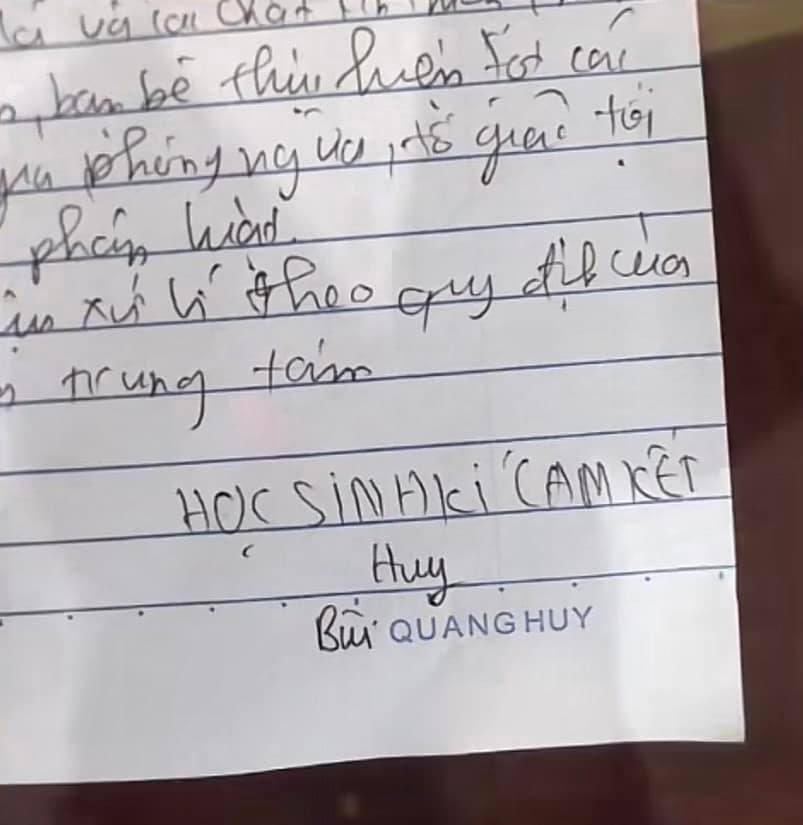 và các chất
bạn bè thực hiện tốt các
phòng ngừa, tố giác tội
phản
xử lí theo quy định của
trung tâm
HỌC SINH KÍ CAM KẾT
Huy
Bùi QUANG HUY